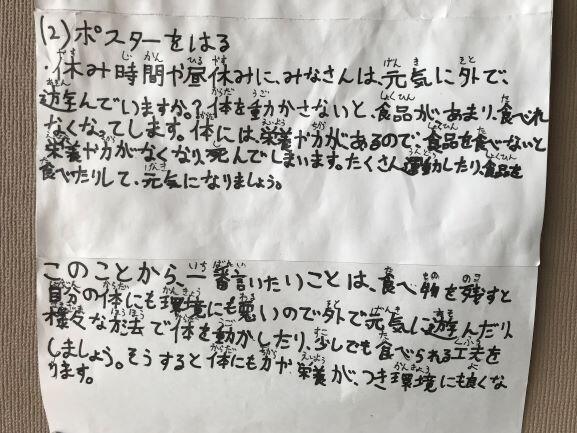 (2)ポスターをはる
・休み時間や昼休みに、みなさんは、元気に外で、
遊んでいますか。？体を動かさないと、食品があまり、食べれ
なくなってします。体には、栄養や力があるので、食品を食べないと
栄養や力がなくなり、死んでしまいます。たくさん運動したり、食品を
食べたりして、元気になりましょう。
このことから、一番言いたいことは、食べ物を残すと
自分の体にも環境にも悪いので外で元気に遊んだり、
様々な方法で体を動かしたり、少しでも食べられる工夫を
しましょう。そうすると体にも力や栄養が、つき環境にも良くな
ります。